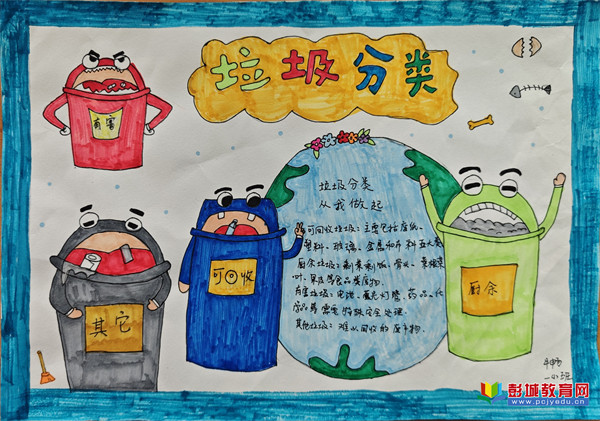 垃圾分类
有害
垃圾分类
从我做起
可回收垃圾：主要包括废纸、
塑料、玻璃、金属和布料五大类
厨余垃圾：剩菜剩饭、骨头、菜根菜
叶、果皮等食品类废物
有害垃圾：电池、荧光灯管、药品、化
学品等需要特殊安全处理
其他垃圾：难以回收的废弃物
可回收
其它
厨余
一（4）班
彭城教育网
www.pcjyedu.cn